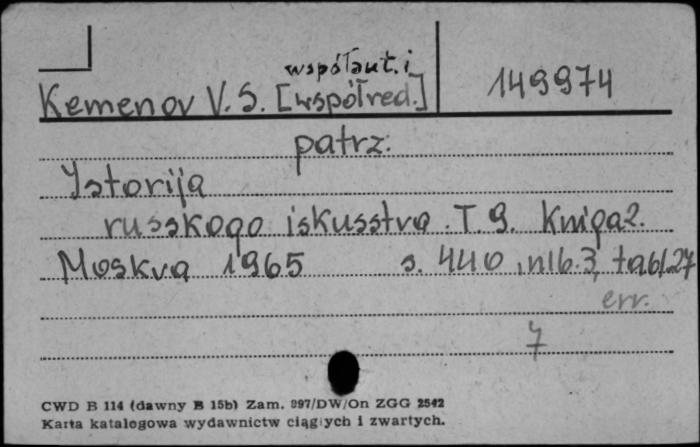 współaut. i
Kemenov V. S. [współred.] 149974
patrz:
Istorija
russkogo iskusstva. T. 9. Kniga 2.
Moskva 1965 s. 440, nlb. 3, tabl. 27
err.
7
CWD B 114 (dawny B 15b) Zam. 997/DW/On ZGG 2542
Karta katalogowa wydawnictw ciągłych i zwartych.